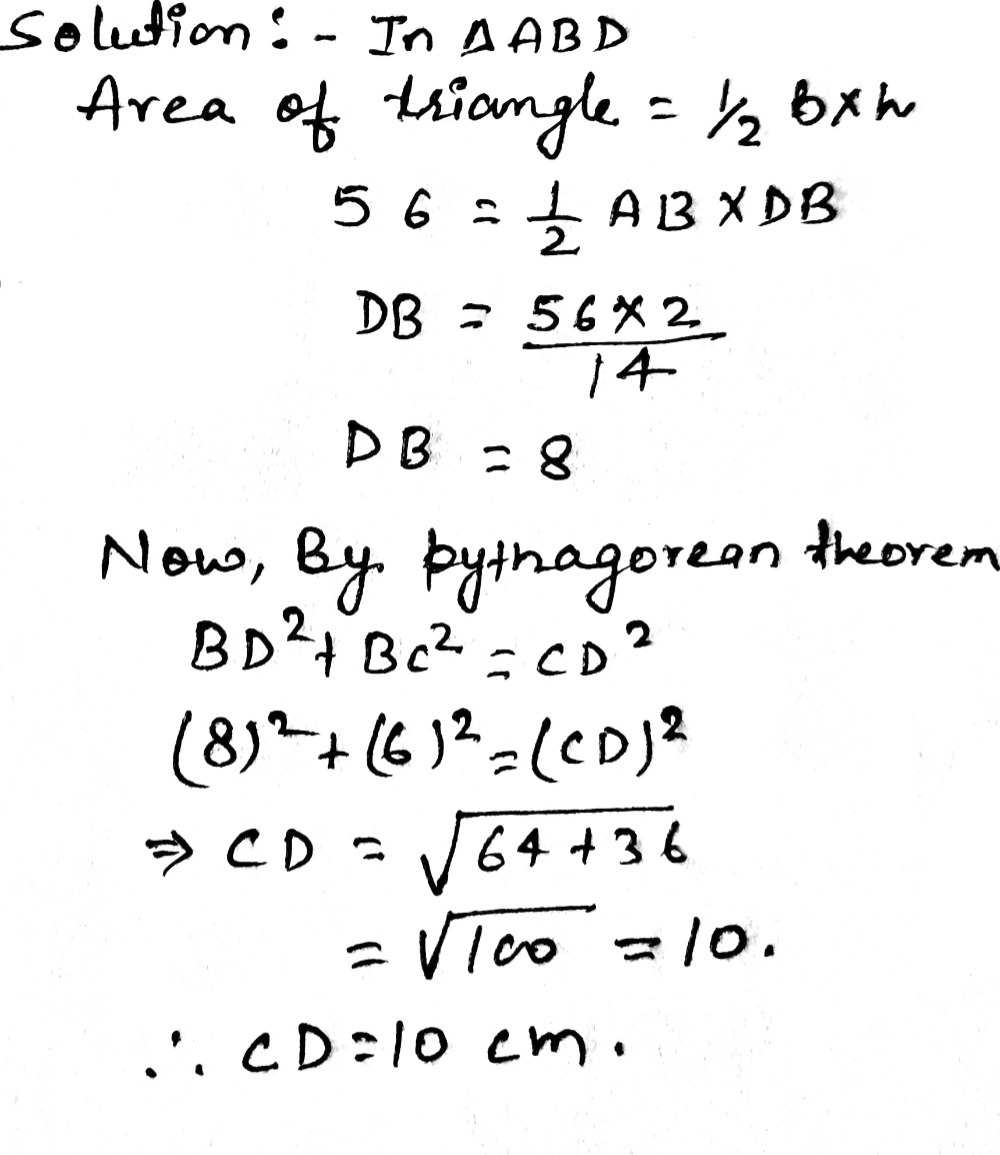 Solution :- In ΔABD
Area of triangle = 1/2 b×h
56 = 1/2 AB × DB
DB = 56×2/14
DB = 8
Now, By pythagorean theorem
BD² + BC² = CD²
(8)² + (6)² = (CD)²
⇒ CD = √64+36
= √100 = 10.
∴ CD = 10 cm.